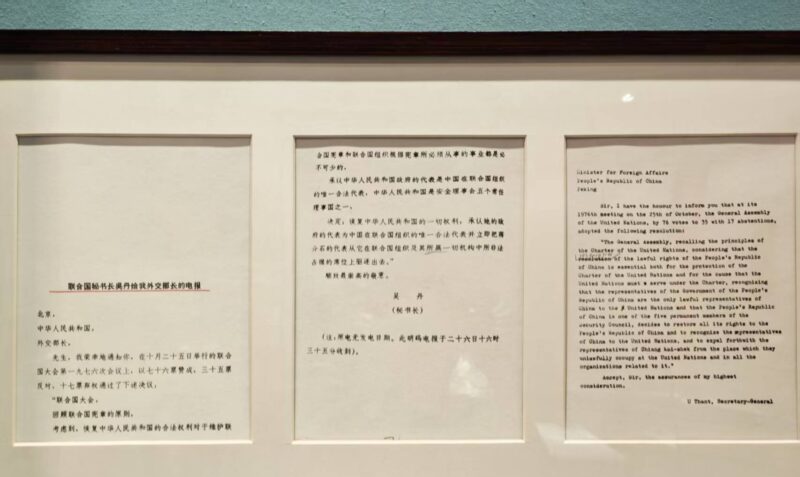 联合国秘书长吴丹给我外交部长的电报
北京,
中华人民共和国,
外交部长,
先生,我荣幸地通知你,在十月二十五日举行的联合
国大会第一九七六次会议上,以七十六票赞成,三十五票
反对,十七票弃权通过了下述决议:
“联合国大会,
回顾联合国宪章的原则,
考虑到,恢复中华人民共和国的合法权利对于维护联
合国宪章和联合国组织根据宪章所必须从事的事业都是必
不可少的,
承认中华人民共和国政府的代表是中国在联合国组织
的唯一合法代表,中华人民共和国是安全理事会五个常任
理事国之一,
决定:恢复中华人民共和国的一切权利,承认她的政
府的代表为中国在联合国组织的唯一合法代表并立即把蒋
介石的代表从它在联合国组织及其所属一切机构中所非法
占据的席位上驱逐出去。”
顺致最崇高的敬意。
吴 丹
(秘书长)
(注:原电无发电日期。此明码电报于二十六日十六时
三十五分收到。)
Minister for Foreign Affairs
People's Republic of China
Peking
Sir, I have the honour to inform you that at its
1976th meeting on the 25th of October, the General Assembly
of the United Nations, by 76 votes to 35 with 17 abstentions,
adopted the following resolution:
"The General Assembly, recalling the principles of
the Charter of the United Nations, considering that the
resolution of the lawful rights of the People's Republic
of China is essential both for the protection of the
Charter of the United Nations and for the cause that the
United Nations must serve under the Charter, recognising
that the representatives of the Government of the People's
Republic of China are the only lawful representatives of
China to the United Nations and that the People's Republic
of China is one of the five permanent members of the
Security Council, decides to restore all its rights to the
People's Republic of China and to recognize the representatives of
China to the United Nations, and to expel forthwith the
representatives of Chiang kai-shek from the place which they
unlawfully occupy at the United Nations and in all the
organizations related to it."
Accept, Sir, the assurances of my highest
consideration.
U Thant, Secretary-General